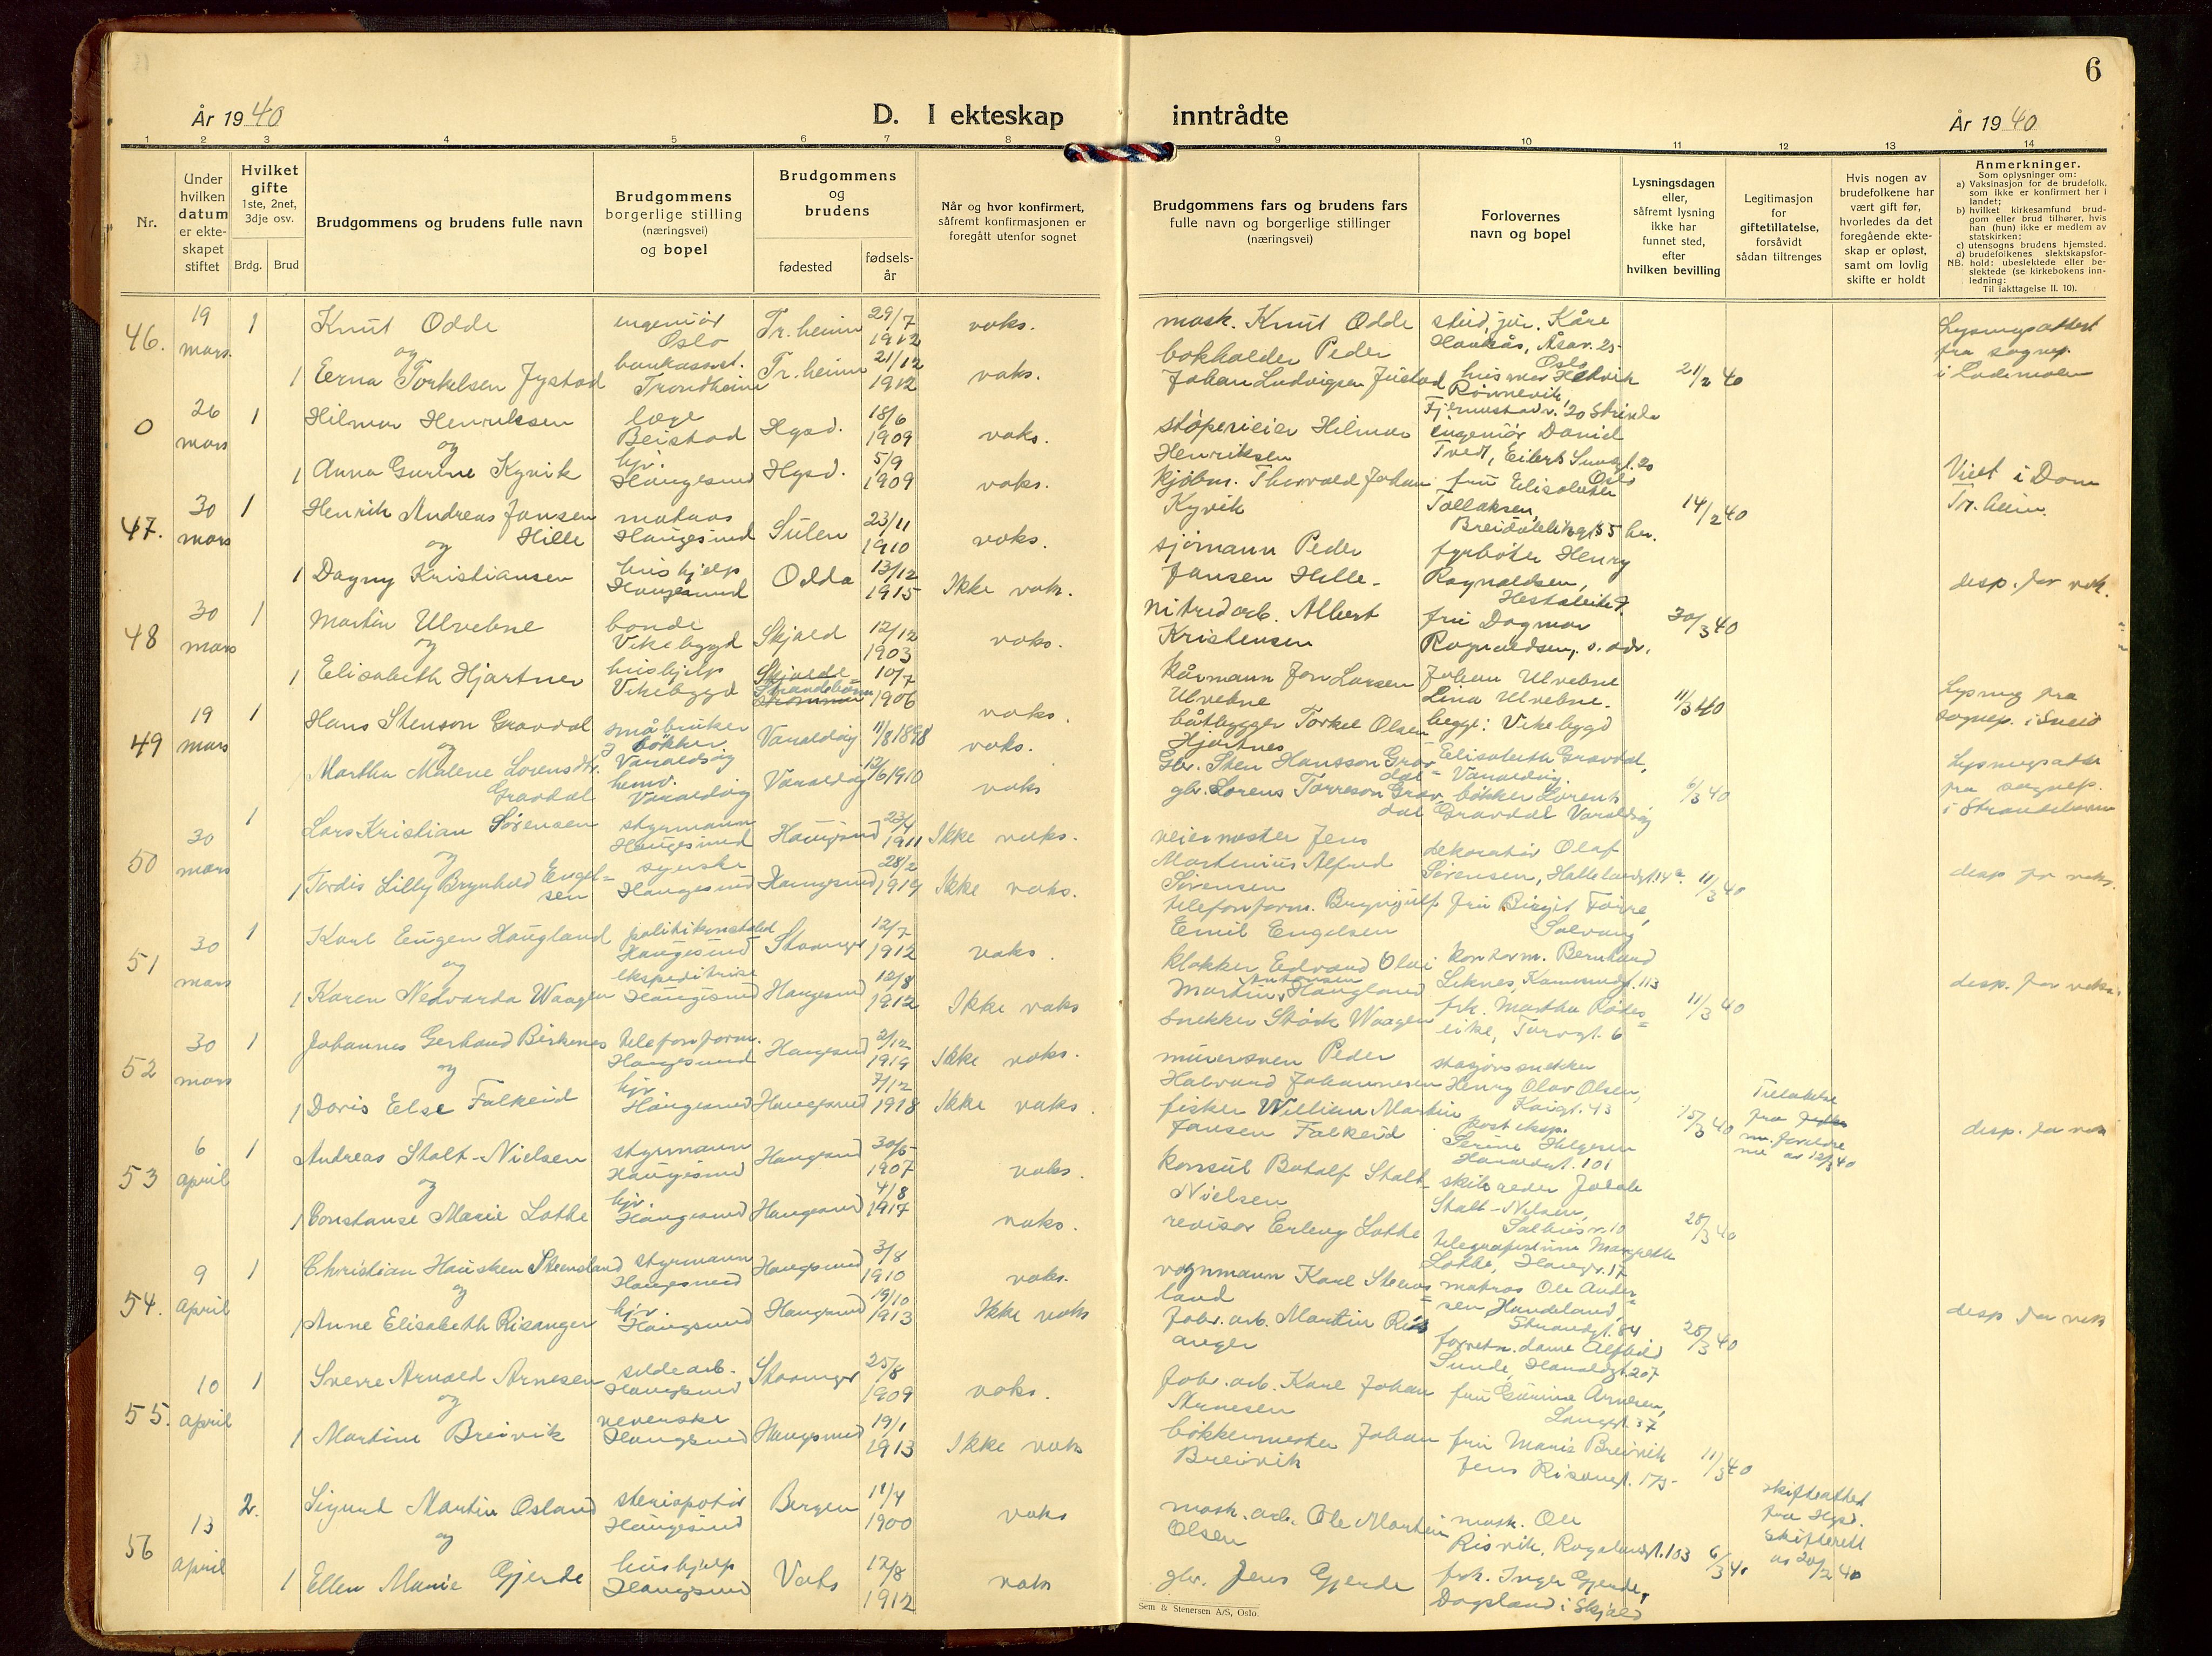 6
År 1940
D. I ekteskap inntrådte
År 1940
1 2 3 4 5 6 7 8 9 10 11 12 13 14
Nr.
Under hvilken datum er ekte- skapet stiftet
Hvilket gifte 1ste, 2net, 3dje osv.
Brdg. Brud
Brudgommens og brudens fulle navn
Brudgommens borgerlige stilling (næringsvei) og bopel
Brudgommens og brudens
fødested
fødsels- år
Når og hvor konfirmert, såfremt konfirmasjonen er foregått utenfor sognet
Brudgommens fars og brudens fars fulle navn og borgerlige stillinger (næringsvei)
Forlovernes navn og bopel
Lysningsdagen eller, såfremt lysning ikke har funnet sted, efter hvilken bevilling
Legitimasjon for giftetillatelse, forsåvidt sådan tiltrenges
Hvis nogen av brudefolkene har vært gift før, hvorledes da det foregående ekte- skap er opløst, samt om lovlig skifte er holdt
Anmerkninger.
Som oplysninger om:
a) Vaksinasjon for de brudefolk, som ikke er konfirmert her i landet;
b) hvilket kirkesamfund brud- gom eller brud tilhører, hvis han (hun) ikke er medlem av statskirken;
c) utensogns brudens hjemsted.
d) brudefolkenes slektskapsfor- hold: ubeslektede eller be- slektede (se kirkebokens inn- ledning:
NB.
Til iakttagelse II. 10).
46. 19 mars 1 Knut Odde ingeniør Oslo Tr.heim 29/7 1912 vaks. mask. Knut Odde stud. jur. Kåre
og
1 Erna Torkelsen Jystad bankassist. Trondheim Tr.heim 21/12 1912 vaks. bokholder Peder Johan Ludvigsen Jüstad 21/2 40
Lysningsattest fra sognep. i Lademoen
0 26 mars 1 Hilmar Henriksen læge Beistad Hgsd. 18/6 1909 vaks. støperieier Hilmar Henriksen ingeniør Daniel Tved, Oslo
og
1 Anna Gurine Kyvik hjv. Haugesund Hgsd. 5/9 1909 vaks. kjøbm. Thorvald Johan Kyvik fru Elisabeth Tollaksen, 14/2 40
Viet i Dom Tr.heim.
47. 30 mars 1 Henrik Andreas Jansen Hille matros Haugesund Sulen 23/11 1910 vaks. sjømann Peder Jansen Hille fyrbøter Henry Ragnvaldsen,
og
1 Dagny Kristiansen hushjelp Haugesund Odda 13/12 1915 Ikke vaks. nitredarb. Albert Kristensen fru Dagmar Ragnvaldsen, s. adr. 30/3 40
desp. for vak.
48 30 mars 1 Martin Ulvebne bonde Vikebygd Skjold 12/12 1903 vaks. kårmann Jon Larsen Ulvebne Johan Ulvebne
og
1 Elisabeth Hjartnes hushjelp Vikebygd Strandebarm 10/7 1906 vaks. båtbygger Torkel Olsen Hjartnes Lina Ulvebne. begge: Vikebygd 11/3 40
Lysning fra sognep. i Sveio
49 19 mars 1 Hans Stenson Gravdal småbruker bøkker Varaldsøy Varaldsøy 11/8 1898 vaks. Gbr. Sten Hansson Gravdal Elisabeth Gravdal, Varaldsøy.
og
1 Martha Malene Lorensdtr. Gravdal hemv. Varaldsøy Varaldsøy 12/6 1910 vaks gbr. Lorens Torreson Gravdal bøkker Lorents Gravdal Varaldsøy 6/3 40
Lysningsattest fra sognep. i Strandebarm
50 30 mars 1 Lars Kristian Sørensen styrmann Haugesund Haugesund 23/4 1911 Ikke vaks. veiermester Jens Martinius Alfred Sørensen dekoratør Olaf Sørensen,
og
1 Tordis Lilly Brynhild Engelsen syerske Haugesund Haugesund 28/2 1919 Ikke vaks. telefonform. Brynjulf Emil Engelsen fru Birgit Førre, Solvang 11/3 40
desp for vaks.
51 30 mars 1 Karl Eugen Haugland politikonstabel Haugesund Stavanger 12/7 1912 vaks. klokker Edvard Olai Martin Antonsen Haugland kontorm. Bernhard Leknes,
og
1 Karen Nedvarda Waagen ekspeditrise Haugesund Haugesund 12/8 1912 Ikke vaks snekker Størk Waagen frk. Martha Rødeseike, Torvgt. 6 11/3 40
desp. for vaks.
52 30 mars 1 Johannes Gerhard Birkenes telefonform. Haugesund Haugesund 2/12 1919 Ikke vaks. murersven Peder Halvard Johannesen stasjonssnekker Henry Olav Olsen, Kaigt. 43
og
1 Doris Else Falkeid hjv Haugesund Haugesund 7/12 1918 Ikke vaks. fisker William Martin Jansen Falkeid posteksp. Serine Helgesen Haraldgt. 101 15/3 40
desp. for vaks
53 6 april 1 Andreas Stolt-Nielsen styrmann Haugesund Haugesund 30/5 1907 vaks. konsul Botolf Stolt-Nielsen skibsreder Jakob Stolt-Nielsen,
og
1 Constanse Marie Lothe hjv. Haugesund Haugesund 4/8 1917 vaks. revisor Erling Lothe telegrafistinne Margrethe Lothe, 28/3 40
54. 9 april 1 Christian Hausken Stensland styrmann Haugesund Haugesund 3/8 1910 vaks. vognmann Karl Stensland matros Ole Andersen Handeland, Strandgt. 84
og
1 Anne Elisabeth Risanger hjv. Haugesund Haugesund 19/10 1913 Ikke vaks fabr. arb. Martin Risanger forretn. dame Alfhild Sunde, Haraldgt. 207 28/3 40
desp for vaks
55. 10 april 1 Sverre Arnold Arnesen sildearb. Haugesund Stavanger 25/8 1909 vaks. fabr. arb. Karl Johan Arnesen fru Gurine Arnesen, Langgt. 37
og
1 Martine Breivik veverske Haugesund Haugesund 19/1 1913 Ikke vaks bøkkermester Johan Breivik fru Marie Breivik Jens Risøengt. 175 11/3 40
56 13 april 2. Sigurd Martin Osland Haugesund Bergen 11/4 1900 vaks mask. arb. Ole Martin Olsen mask. Ole Risvik, Rogalandsgt. 103
skifteattest fra Hgsd. skifterett av 20/2 40
og
1 Ellen Marie Gjerde hushjelp Haugesund Vats 12/8 1912 vaks gbr. Jens Gjerde frk. Inger Gjerde, Dagsland i Skjold 6/3 40
Sem & Stenersen A/S, Oslo.